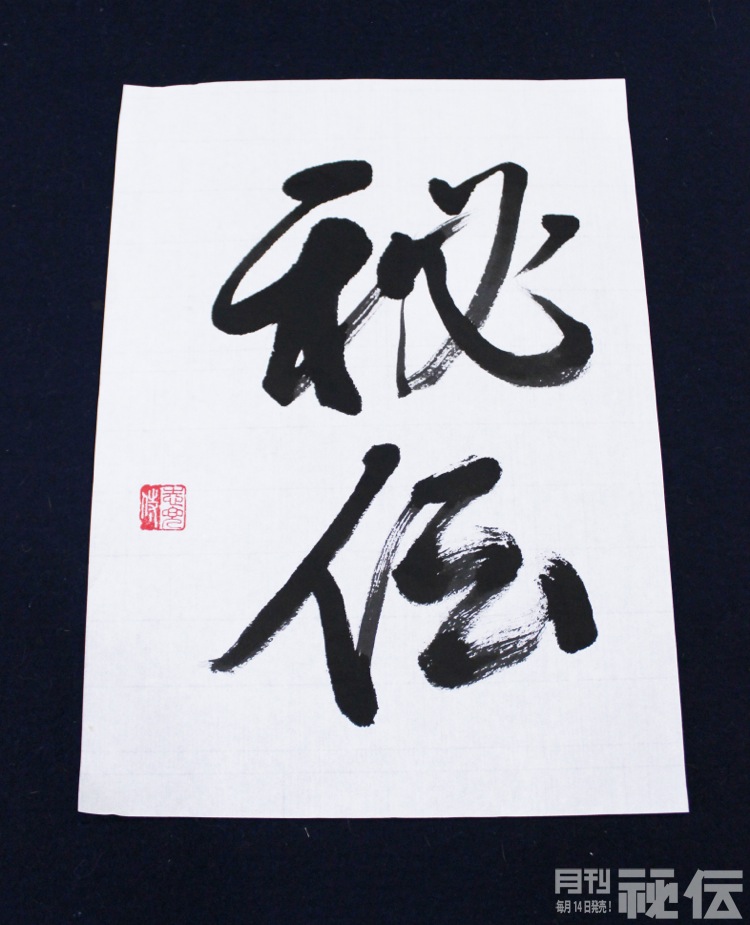 秘伝
月刊秘伝
毎月14日発売!